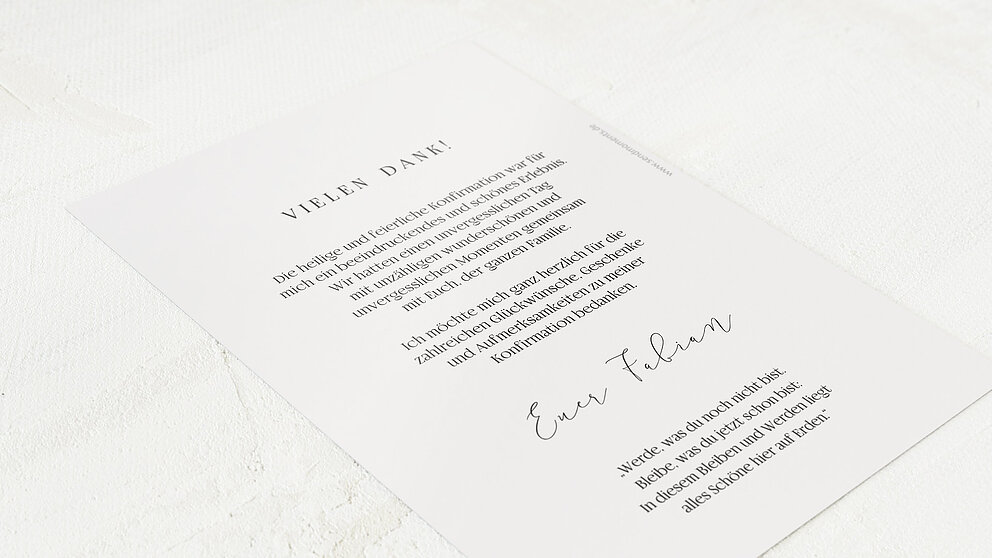 VIELEN DANK!
Die heilige und feierliche Konfirmation war für
mich ein beeindruckendes und schönes Erlebnis.
Wir hatten einen unvergesslichen Tag
mit unzähligen wunderschönen und
unvergesslichen Momenten gemeinsam
mit Euch, der ganzen Familie.
Ich möchte mich ganz herzlich für die
zahlreichen Glückwünsche, Geschenke
und Aufmerksamkeiten zu meiner
Konfirmation bedanken.
Euer Fabian
„Werde, was du noch nicht bist.
Bleibe, was du jetzt schon bist:
In diesem Bleiben und Werden liegt
alles Schöne hier auf Erden.“
www.sendmoments.de